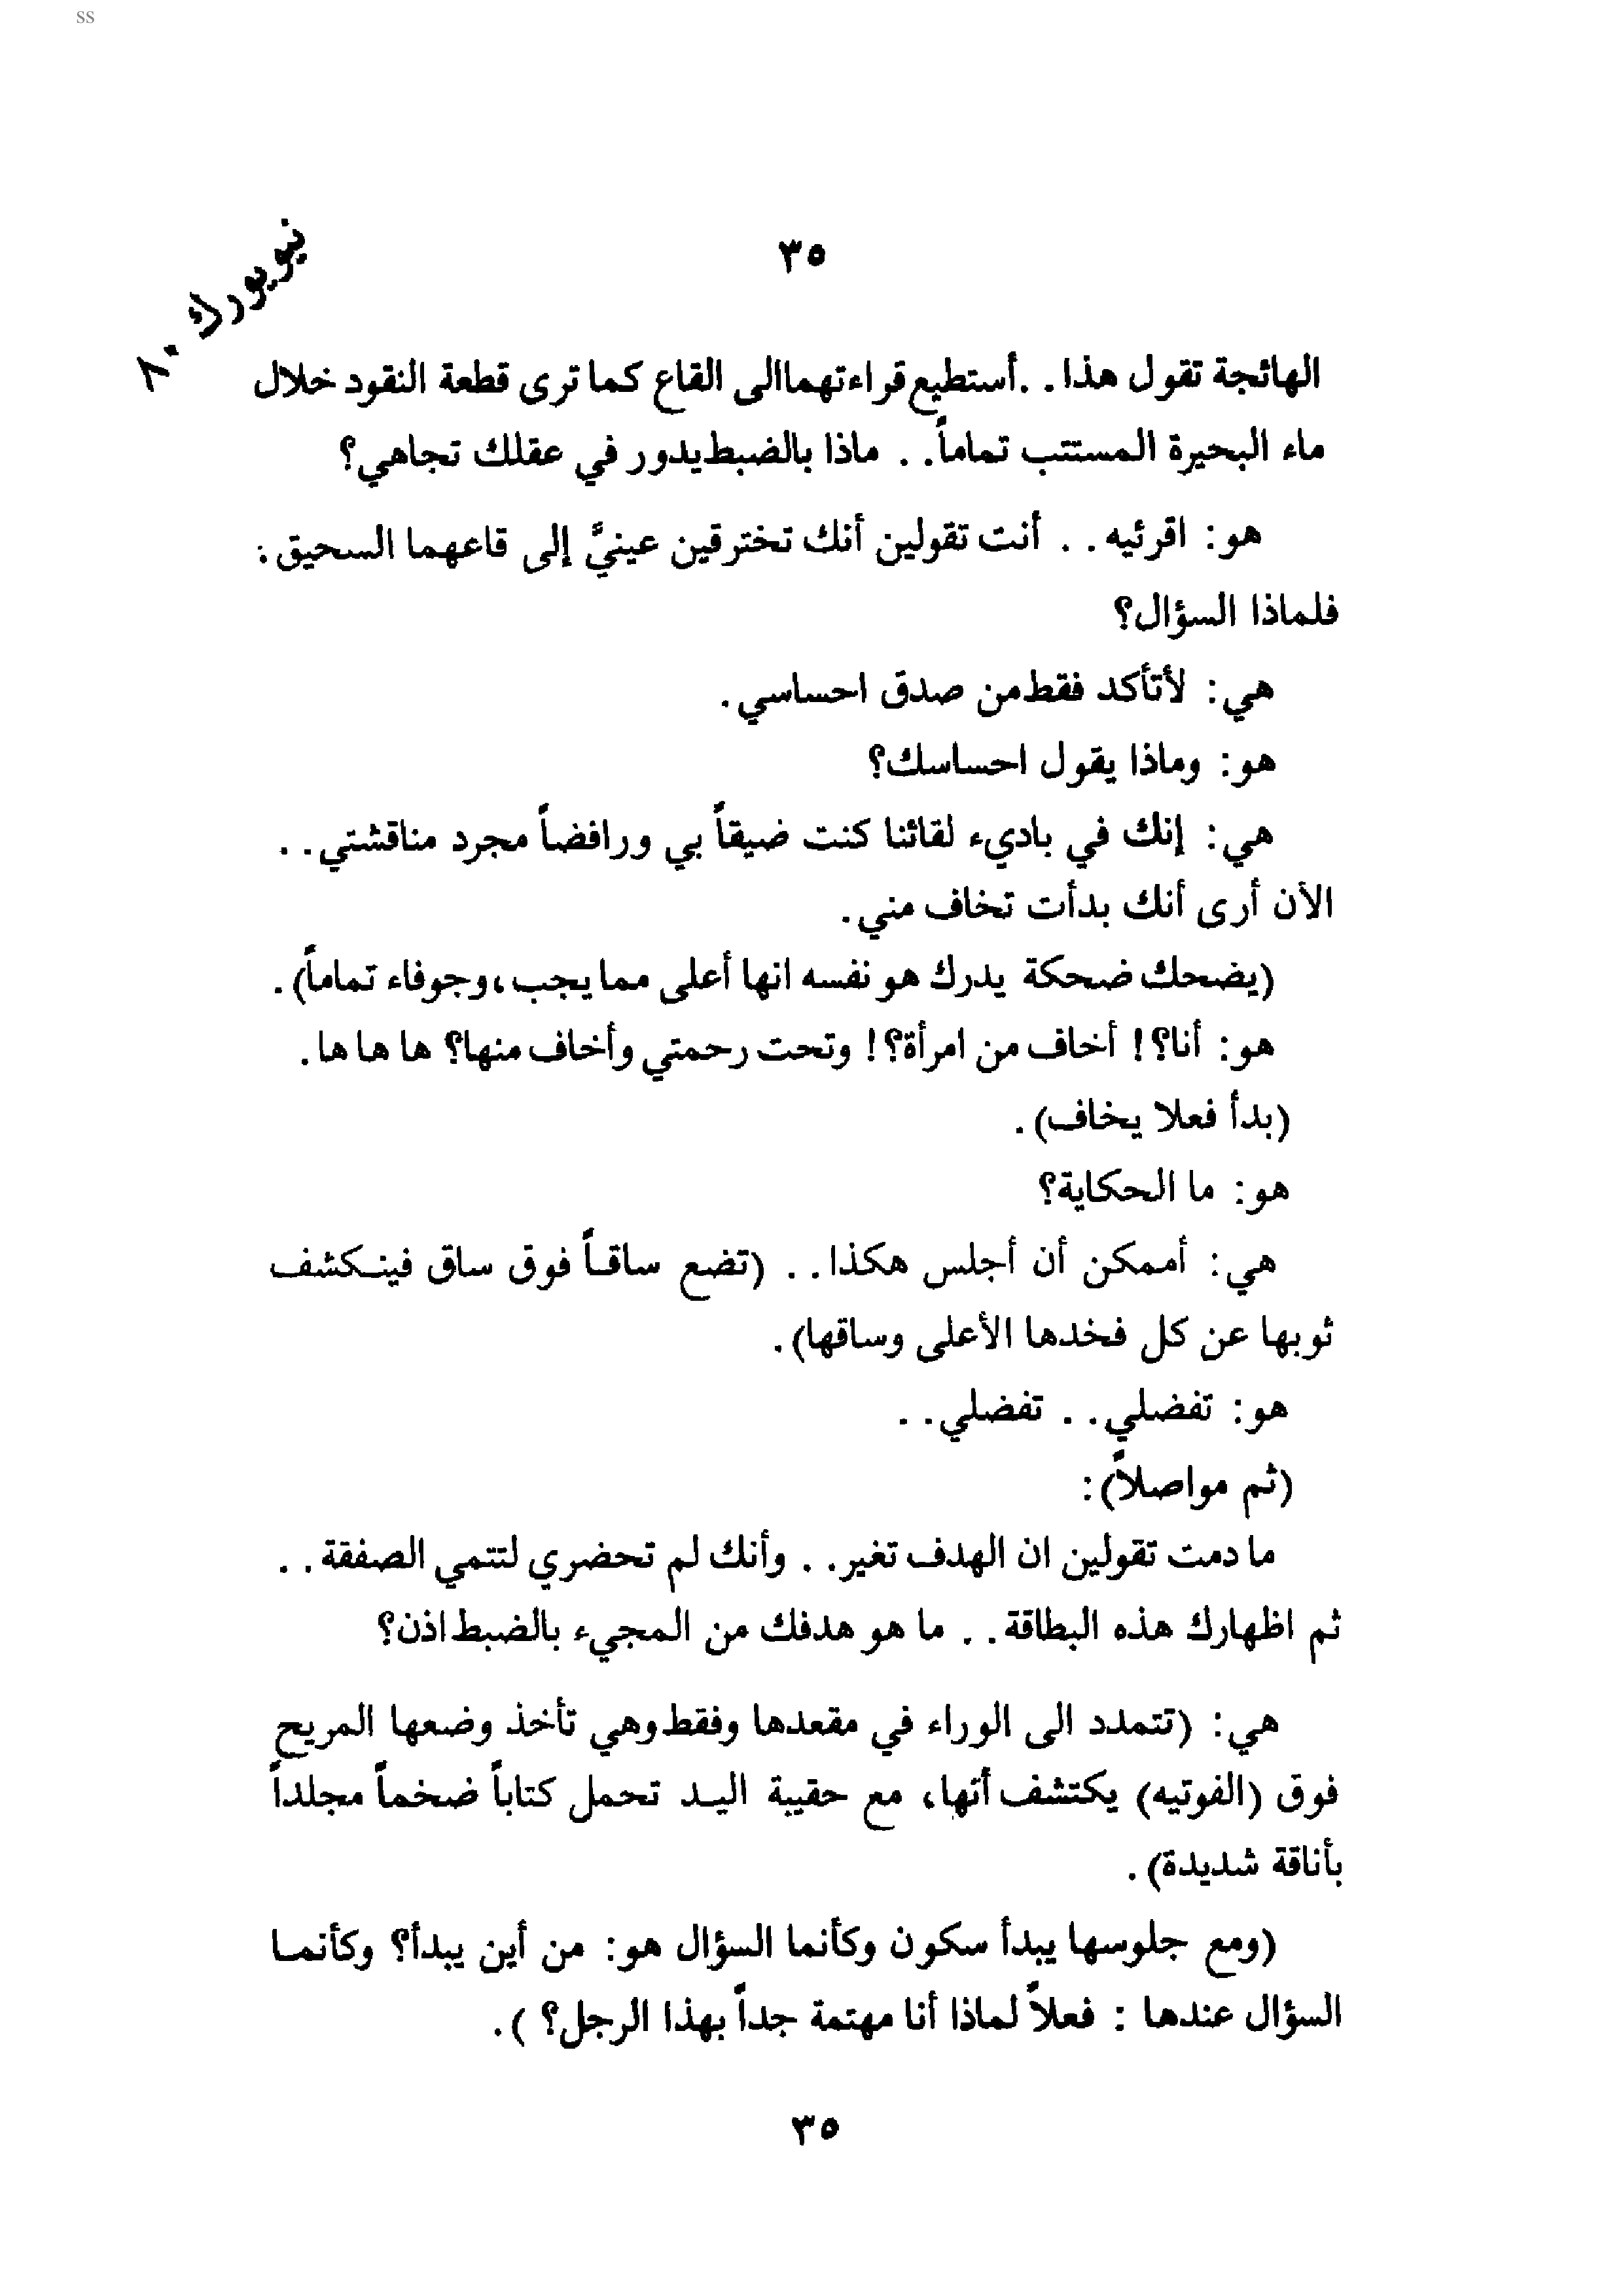 ss
٣٥
نيويورك ٨٠
الهائجة تقول هذا . . أستطيع قراءتهما الى القاع كما ترى قطعة النقود خلال
ماء البحيرة المستتب تماماً . . ماذا بالضبط يدور في عقلك تجاهي؟
هو: اقرئيه . . أنت تقولين أنك تخترقين عينيَّ إلى قاعهما السحيق :
فلماذا السؤال؟
هي: لأتأكد فقط من صدق احساسي .
هو: وماذا يقول احساسك؟
هي: إنك في باديء لقائنا كنت ضيقاً بي ورافضاً مجرد مناقشتي . .
الأن أرى أنك بدأت تخاف مني .
(يضحك ضحكة يدرك هو نفسه انها أعلى مما يجب ، وجوفاء تماماً) .
هو: أنا؟! أخاف من امرأة؟! وتحت رحمتي وأخاف منها؟ ها ها ها .
(بدأ فعلا يخاف) .
هو: ما الحكاية؟
هي: أممكن أن أجلس هكذا . . (تضع ساقاً فوق ساق فينكشف
ثوبها عن كل فخدها الأعلى وساقها) .
هو: تفضلي . . تفضلي . .
(ثم مواصلاً) :
ما دمت تقولين ان الهدف تغير . . وأنك لم تحضري لتتمي الصفقة . .
ثم اظهارك هذه البطاقة . . ما هو هدفك من المجيء بالضبط اذن؟
هي: (تتمدد الى الوراء في مقعدها وفقط وهي تأخذ وضعها المريح
فوق (الفوتيه) يكتشف أنها، مع حقيبة اليد تحمل كتاباً ضخماً مجلداً
بأناقة شديدة) .
(ومع جلوسها يبدأ سكون وكأنما السؤال هو: من أين يبدأ؟ وكأنما
السؤال عندها : فعلاً لماذا أنا مهتمة جداً بهذا الرجل؟ ) .
٣٥